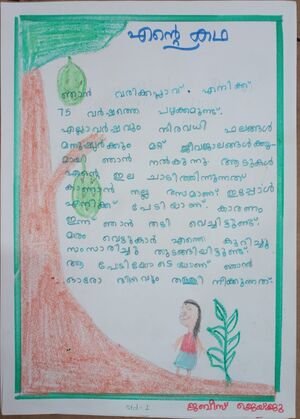 എന്റെ കഥ
ഞാൻ വരിക്കപ്ലാവ്. എനിക്ക്
75 വർഷത്തെ പഴക്കമുണ്ട്.
എല്ലാവർഷവും നിരവധി ഫലങ്ങൾ
മനുഷ്യർക്കും മറ്റ് ജീവജാലങ്ങൾക്കു-
മായി ഞാൻ നൽകുന്നു. ആടുകൾ
എന്റെ ഇല ചാടിത്തിന്നുന്നത്
കാണാൻ നല്ല രസമാണ്. ഇപ്പോൾ
എനിക്ക് പേടിയാണ്. കാരണം
ഇന്ന് ഞാൻ തടി വെച്ചിട്ടുണ്ട്.
മരം വെട്ടുകാർ എന്നെ കുറിച്ചു
സംസാരിച്ചു തുടങ്ങിയിട്ടുണ്ട്.
ആ പേടിയോടെയാണ് ഞാൻ
ഓരോ ദിവസവും തള്ളി നീക്കുന്നത്.
Std-2